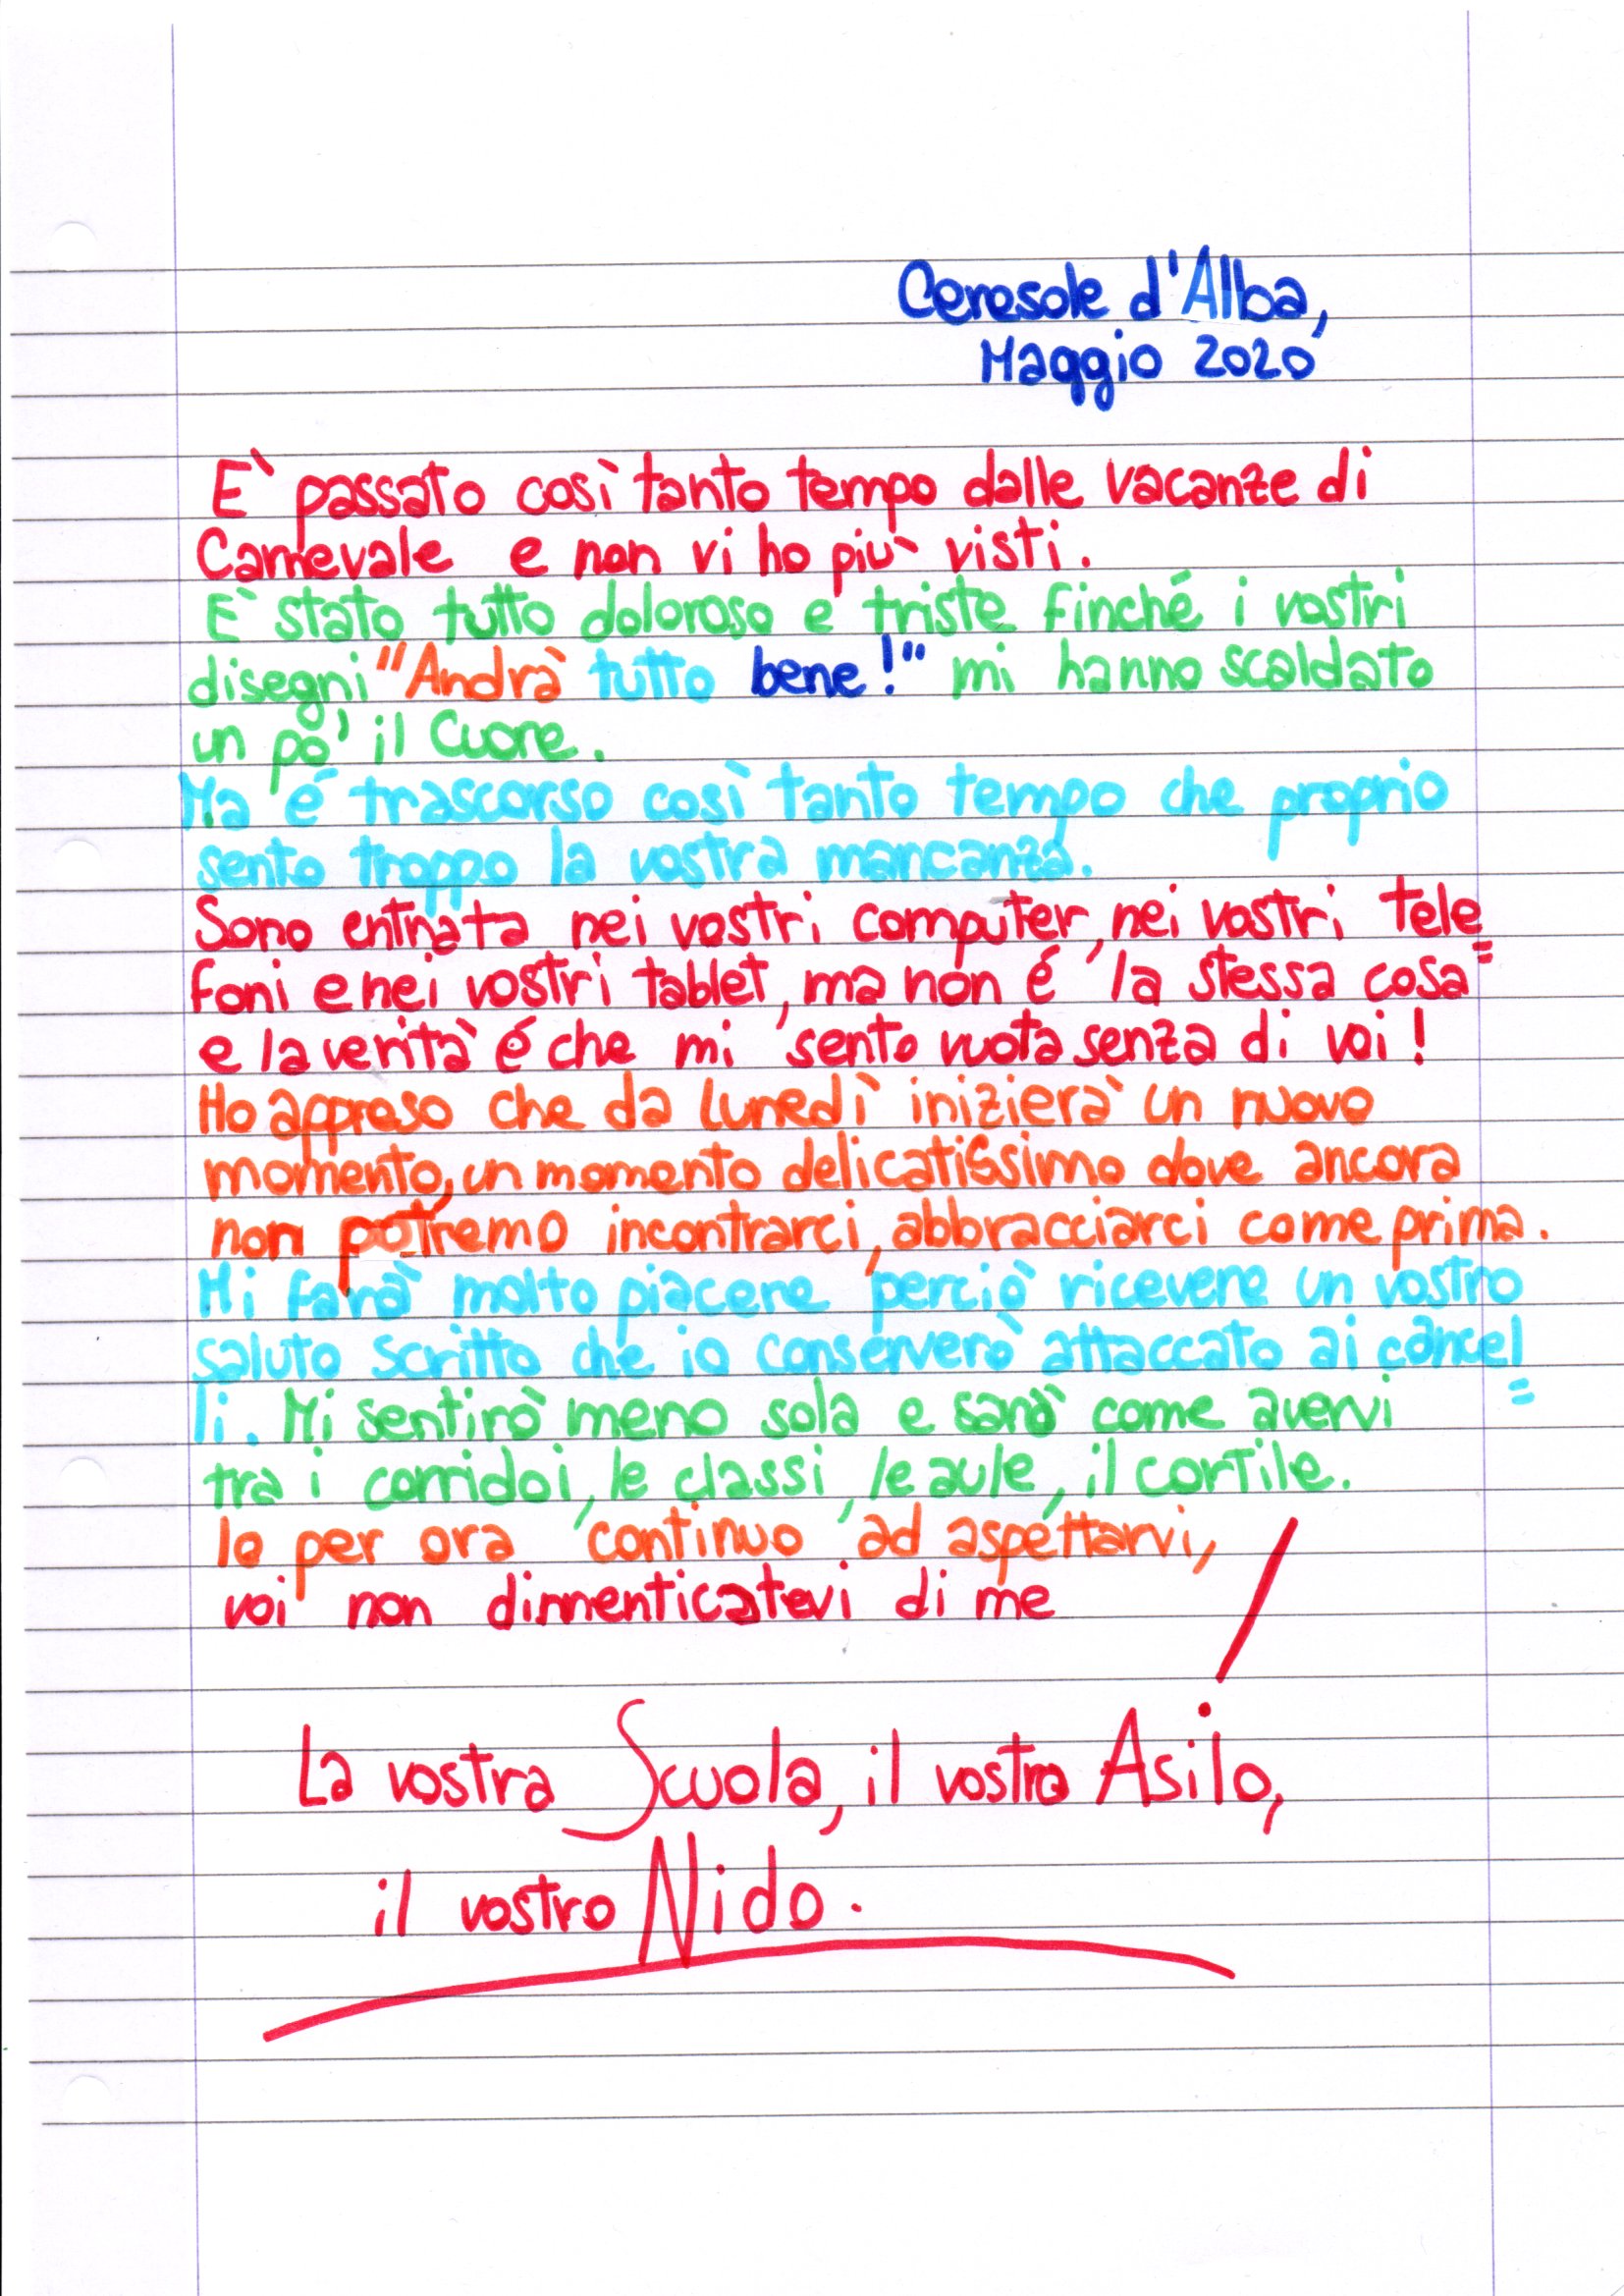 Ceresole d'Alba,
Maggio 2020
E' passato così tanto tempo dalle vacanze di
Carnevale e non vi ho più visti.
E' stato tutto doloroso e triste finché i vostri
disegni "Andrà tutto bene!" mi hanno scaldato
un pò' il Cuore.
Ma é trascorso così tanto tempo che proprio
sento troppo la vostra mancanza.
Sono entrata nei vostri computer, nei vostri tele=
foni e nei vostri tablet, ma non é la stessa cosa
e la verità é che mi sento vuota senza di voi!
Ho appreso che da lunedì inizierà un nuovo
momento, un momento delicatissimo dove ancora
non potremo incontrarci, abbracciarci come prima.
Mi farà molto piacere perciò ricevere un vostro
saluto scritto che io conserverò attaccato ai cancel=
li. Mi sentirò meno sola e sarà come avervi
tra i corridoi, le classi, le aule, il cortile.
Io per ora continuo ad aspettarvi,
voi non dimenticatevi di me!
La vostra Scuola, il vostro Asilo,
il vostro Nido.